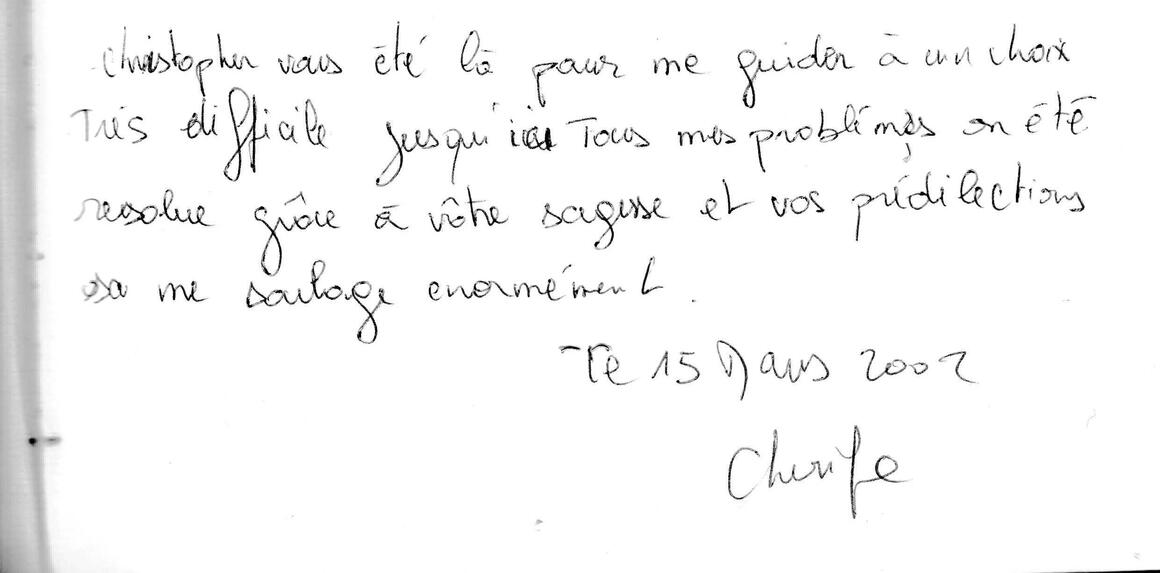 Christopher vous été là pour me guider à un choix
Très difficile jusqu'ici Tous mes problèmes on été
resolue grâce à vôtre sagesse et vos prédilections
sa me soulage enormément.
Le 15 Mars 2002
Cherife